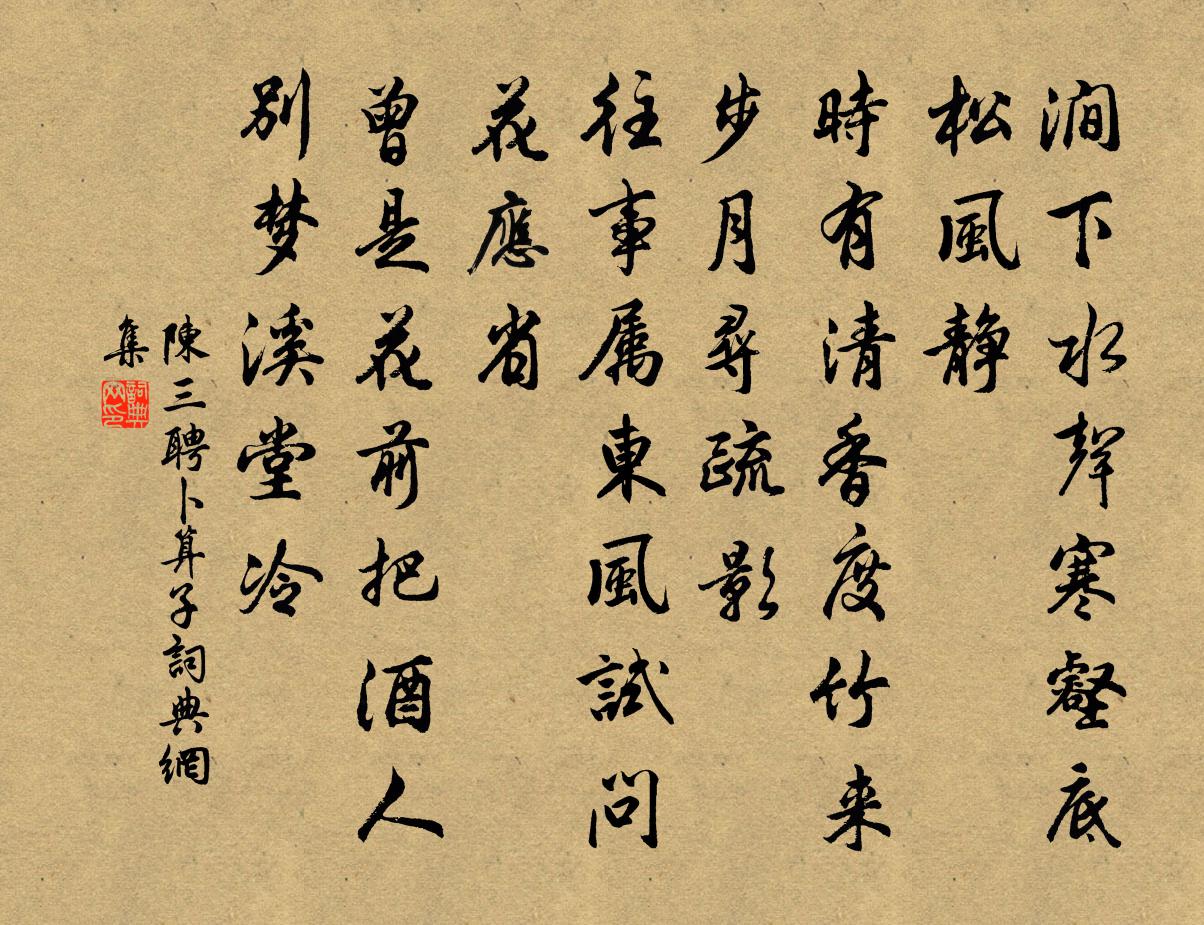 澗下水聲寒壑底
松風靜
時有清香度竹来
步月尋疏影
往事属東風試問
花應省
曾是花前把酒人
别梦溪堂冷
陳三聘卜算子詞典網
集
詞典
网印